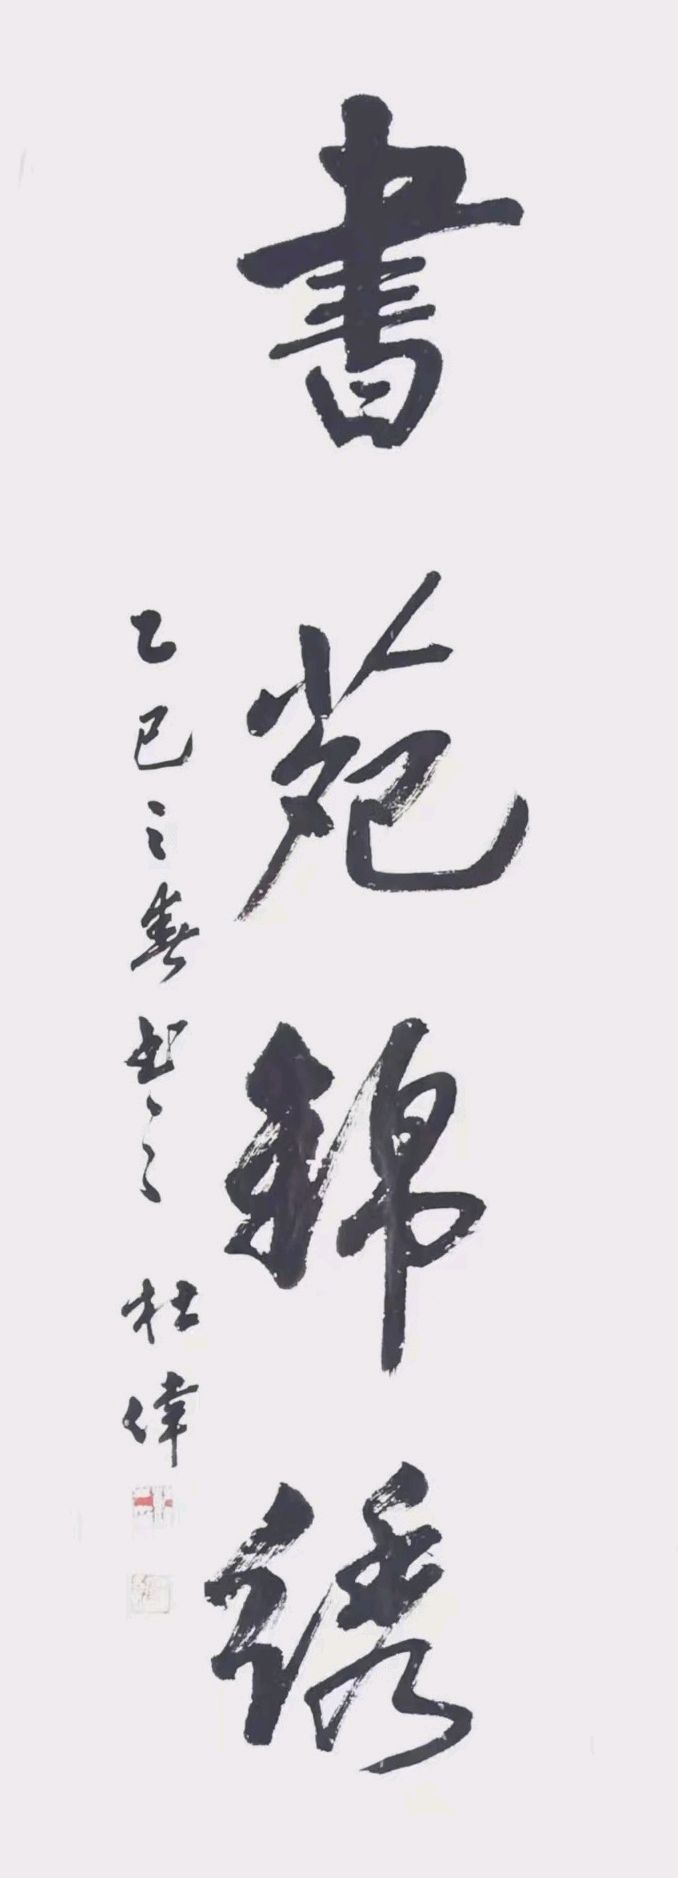 書苑錦綉
乙巳之春書之杜偉